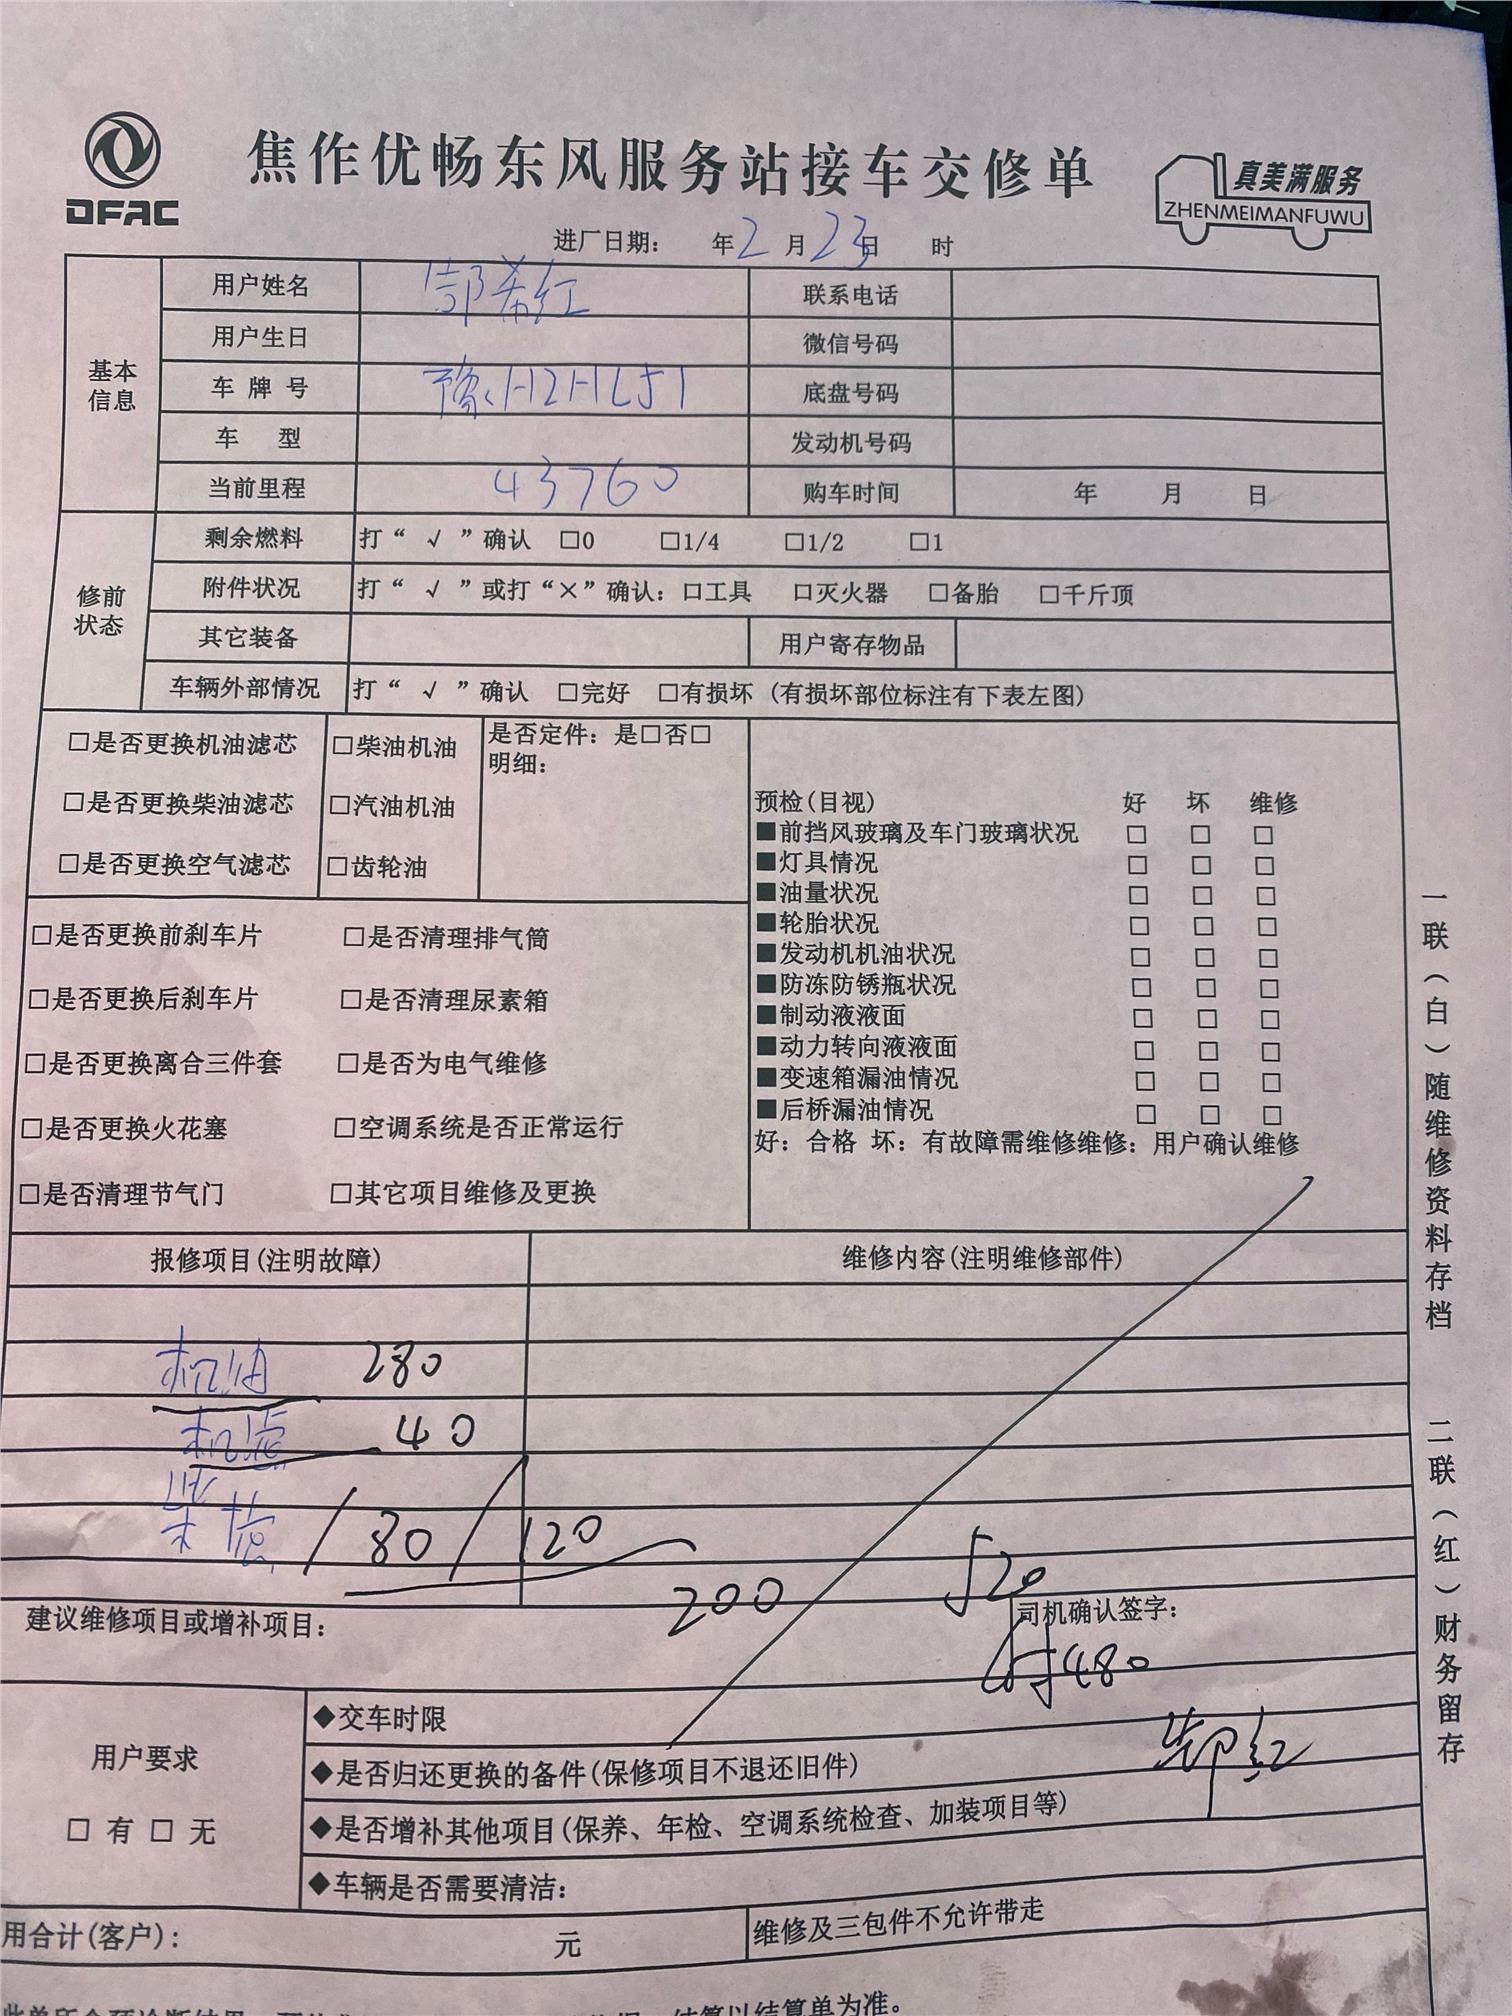 DFAC
焦作优畅东风服务站接车交修单
真美满服务
ZHENMEIMANFUWU
进厂日期： 年2月23日 时
基本信息
用户姓名 郜希红 联系电话
用户生日 微信号码
车牌号 豫H2HL51 底盘号码
车型 发动机号码
当前里程 43760 购车时间 年 月 日
修前状态
剩余燃料 打“√”确认 □0 □1/4 □1/2 □1
附件状况 打“√”或打“×”确认：□工具 □灭火器 □备胎 □千斤顶
其它装备 用户寄存物品
车辆外部情况 打“√”确认 □完好 □有损坏（有损坏部位标注有下表左图）
□是否更换机油滤芯 □柴油机油
□是否更换柴油滤芯 □汽油机油
□是否更换空气滤芯 □齿轮油
是否定件：是□否□
明细：
□是否更换前刹车片 □是否清理排气筒
□是否更换后刹车片 □是否清理尿素箱
□是否更换离合三件套 □是否为电气维修
□是否更换火花塞 □空调系统是否正常运行
□是否清理节气门 □其它项目维修及更换
预检(目视) 好 坏 维修
■前挡风玻璃及车门玻璃状况 □ □ □
■灯具情况 □ □ □
■油量状况 □ □ □
■轮胎状况 □ □ □
■发动机机油状况 □ □ □
■防冻防锈瓶状况 □ □ □
■制动液液面 □ □ □
■动力转向液液面 □ □ □
■变速箱漏油情况 □ □ □
■后桥漏油情况 □ □ □
好：合格 坏：有故障需维修维修：用户确认维修
报修项目(注明故障) 维修内容(注明维修部件)
机油 280
机滤 40
柴滤 / 80 / 120
200
520
建议维修项目或增补项目：
司机确认签字：
付480
郜红
用户要求
□有□无
◆交车时限
◆是否归还更换的备件(保修项目不退还旧件)
◆是否增补其他项目(保养、年检、空调系统检查、加装项目等)
◆车辆是否需要清洁：
用合计(客户)： 元
维修及三包件不允许带走
结算以结算单为准。
一联（白）随维修资料存档
二联（红）财务留存